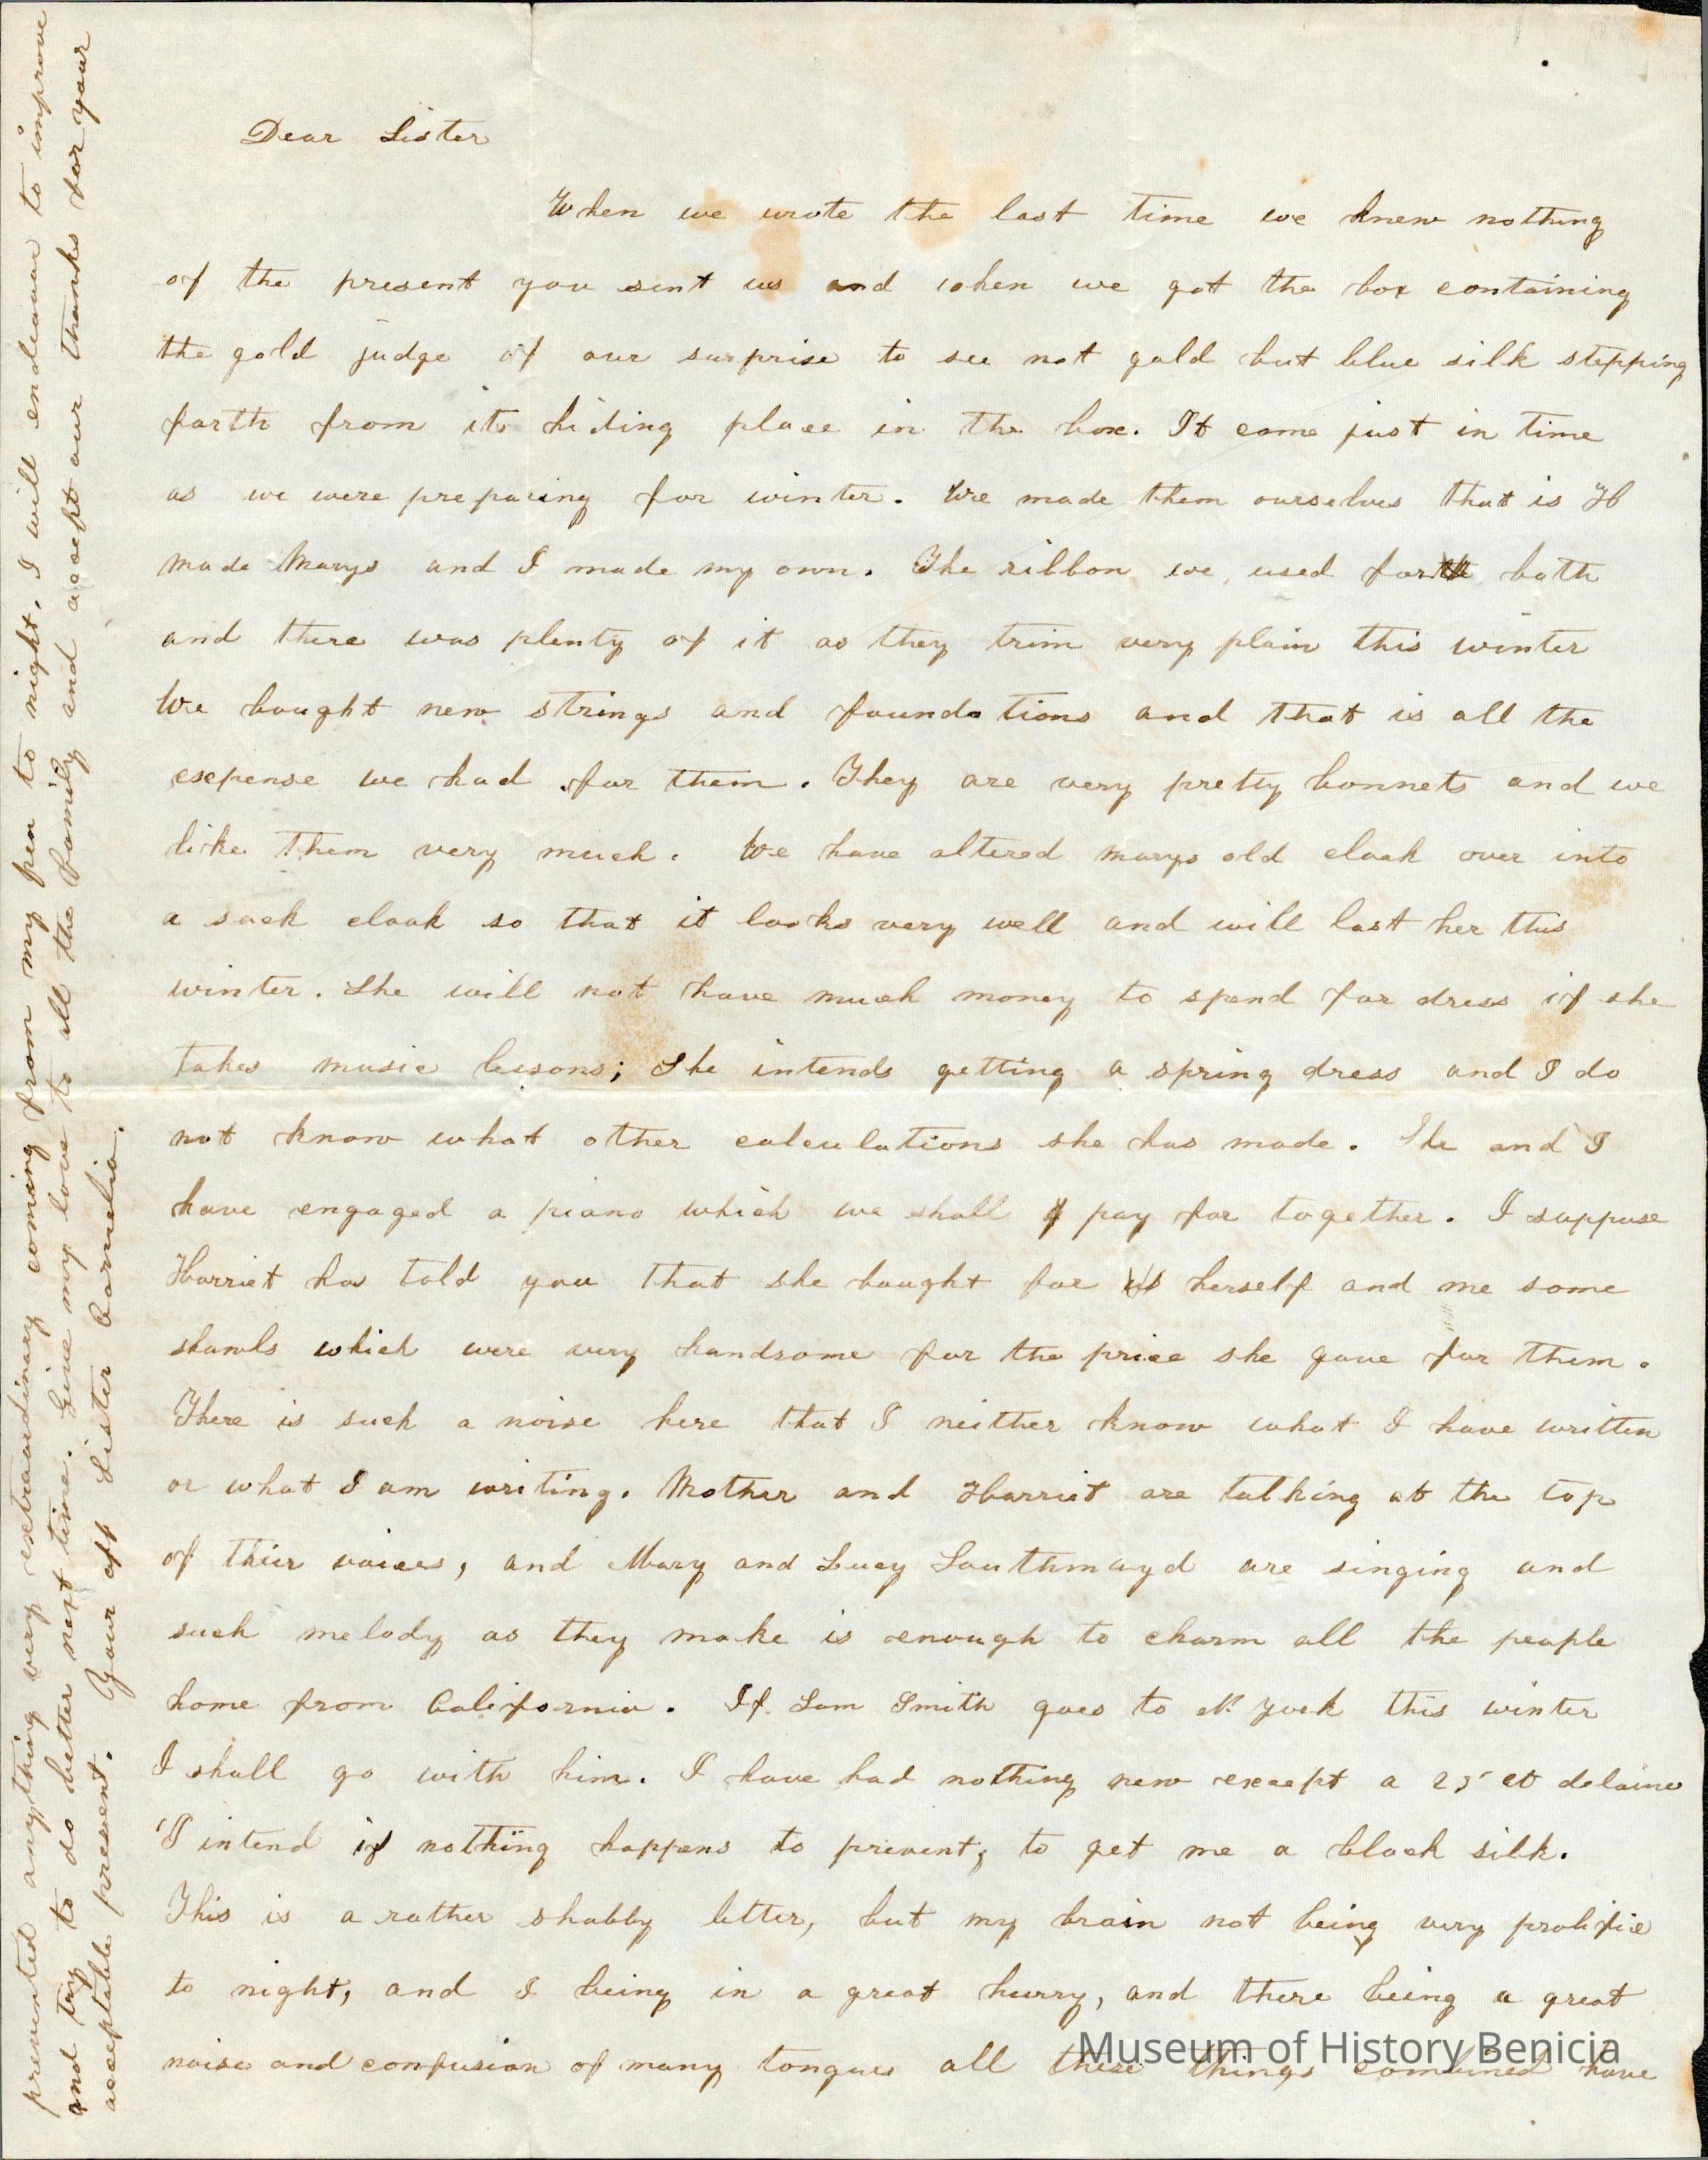 Dear Sister
When we wrote the last time we knew nothing
of the present you sent us and when we got the box containing
the gold judge of our surprise to see not gold but blue silk stepping
forth from its hiding place in the box. It came just in time
as we were preparing for winter. We made them ourselves that is H
made Marys and I made my own. The ribbon we used for both
and there was plenty of it as they trim very plain this winter
We bought new strings and foundations and that is all the
expense we had for them. They are very pretty bonnets and we
like them very much. We have altered marys old cloak over into
a sack cloak so that it looks very well and will last her this
winter. She will not have much money to spend for dress if she
takes music lessons; She intends getting a spring dress and I do
not know what other calculations she has made. She and I
have engaged a piano which we shall pay for together. I suppose
Harriet has told you that she bought for herself and me some
shawls which were very handsome for the price she gave for them.
There is such a noise here that I neither know what I have written
or what I am writing. Mother and Harriet are talking at the top
of thier voices, and Mary and Lucy Southmayd are singing and
such melody as they make is enough to charm all the people
home from California. If Sam Smith goes to N. York this winter
I shall go with him. I have had nothing new except a 25 ct delaine
I intend if nothing happens to prevent, to get me a black silk.
This is a rather shabby letter, but my brain not being very prolific
to night, and I being in a great hurry, and there being a great
noise and confusion of many tongues all these things combined have
prevented anything very extraordinary coming from my pen to night. I will endeavour to improve
and try to do better next time. Give my love to all the family and accept our thanks for your
acceptable present. Your aff Sister Cornelia.
Museum of History Benicia